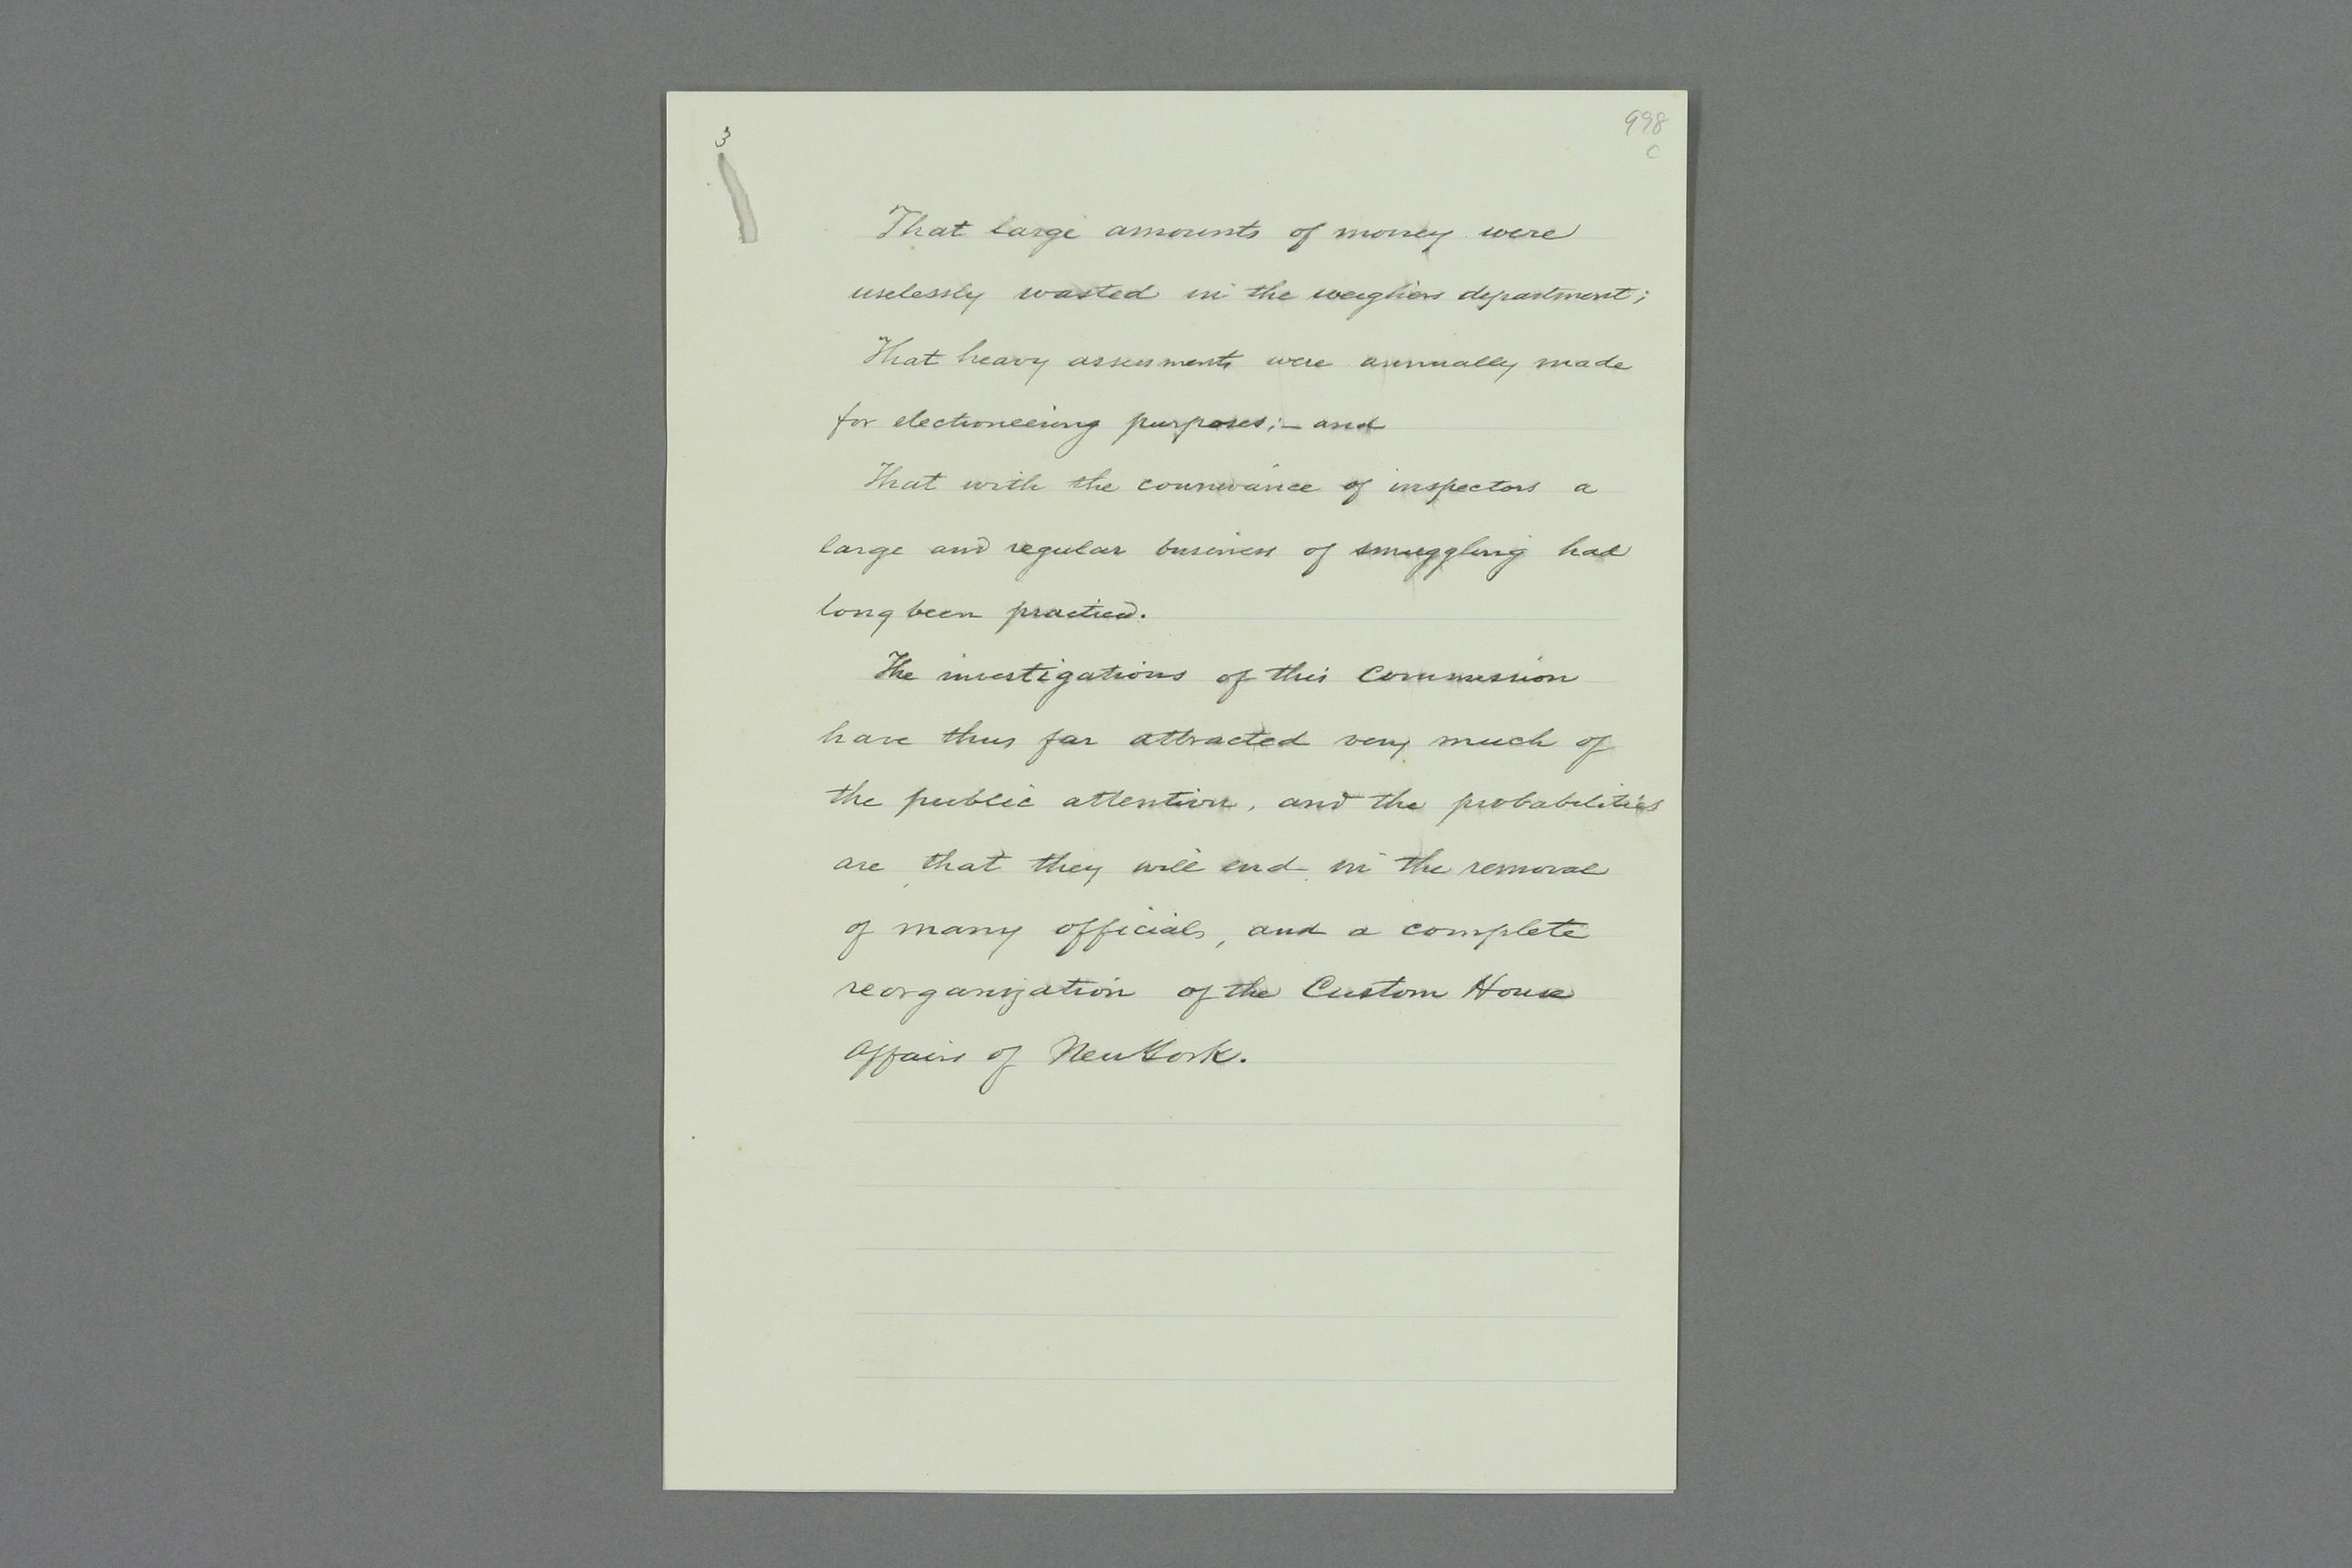 3
998
C
That large amounts of money were
uselessly wasted in the weighers department;
That heavy assessments were annually made
for electioneering purposes; - and
That with the connivance of inspectors a
large and regular business of smuggling had
long been practiced.
The investigations of this Commission
have thus far attracted very much of
the public attention, and the probabilities
are that they will end in the removal
of many officials, and a complete
reorganization of the Custom House
Affairs of New York.